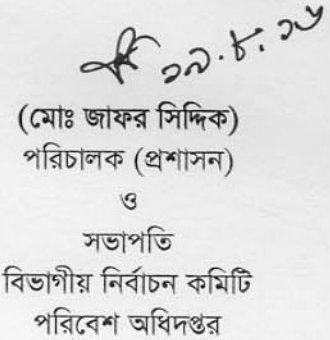 ১৯.৮.১৬
(মোঃ জাফর সিদ্দিক)
পরিচালক (প্রশাসন)
ও
সভাপতি
বিভাগীয় নির্বাচন কমিটি
পরিবেশ অধিদপ্তর